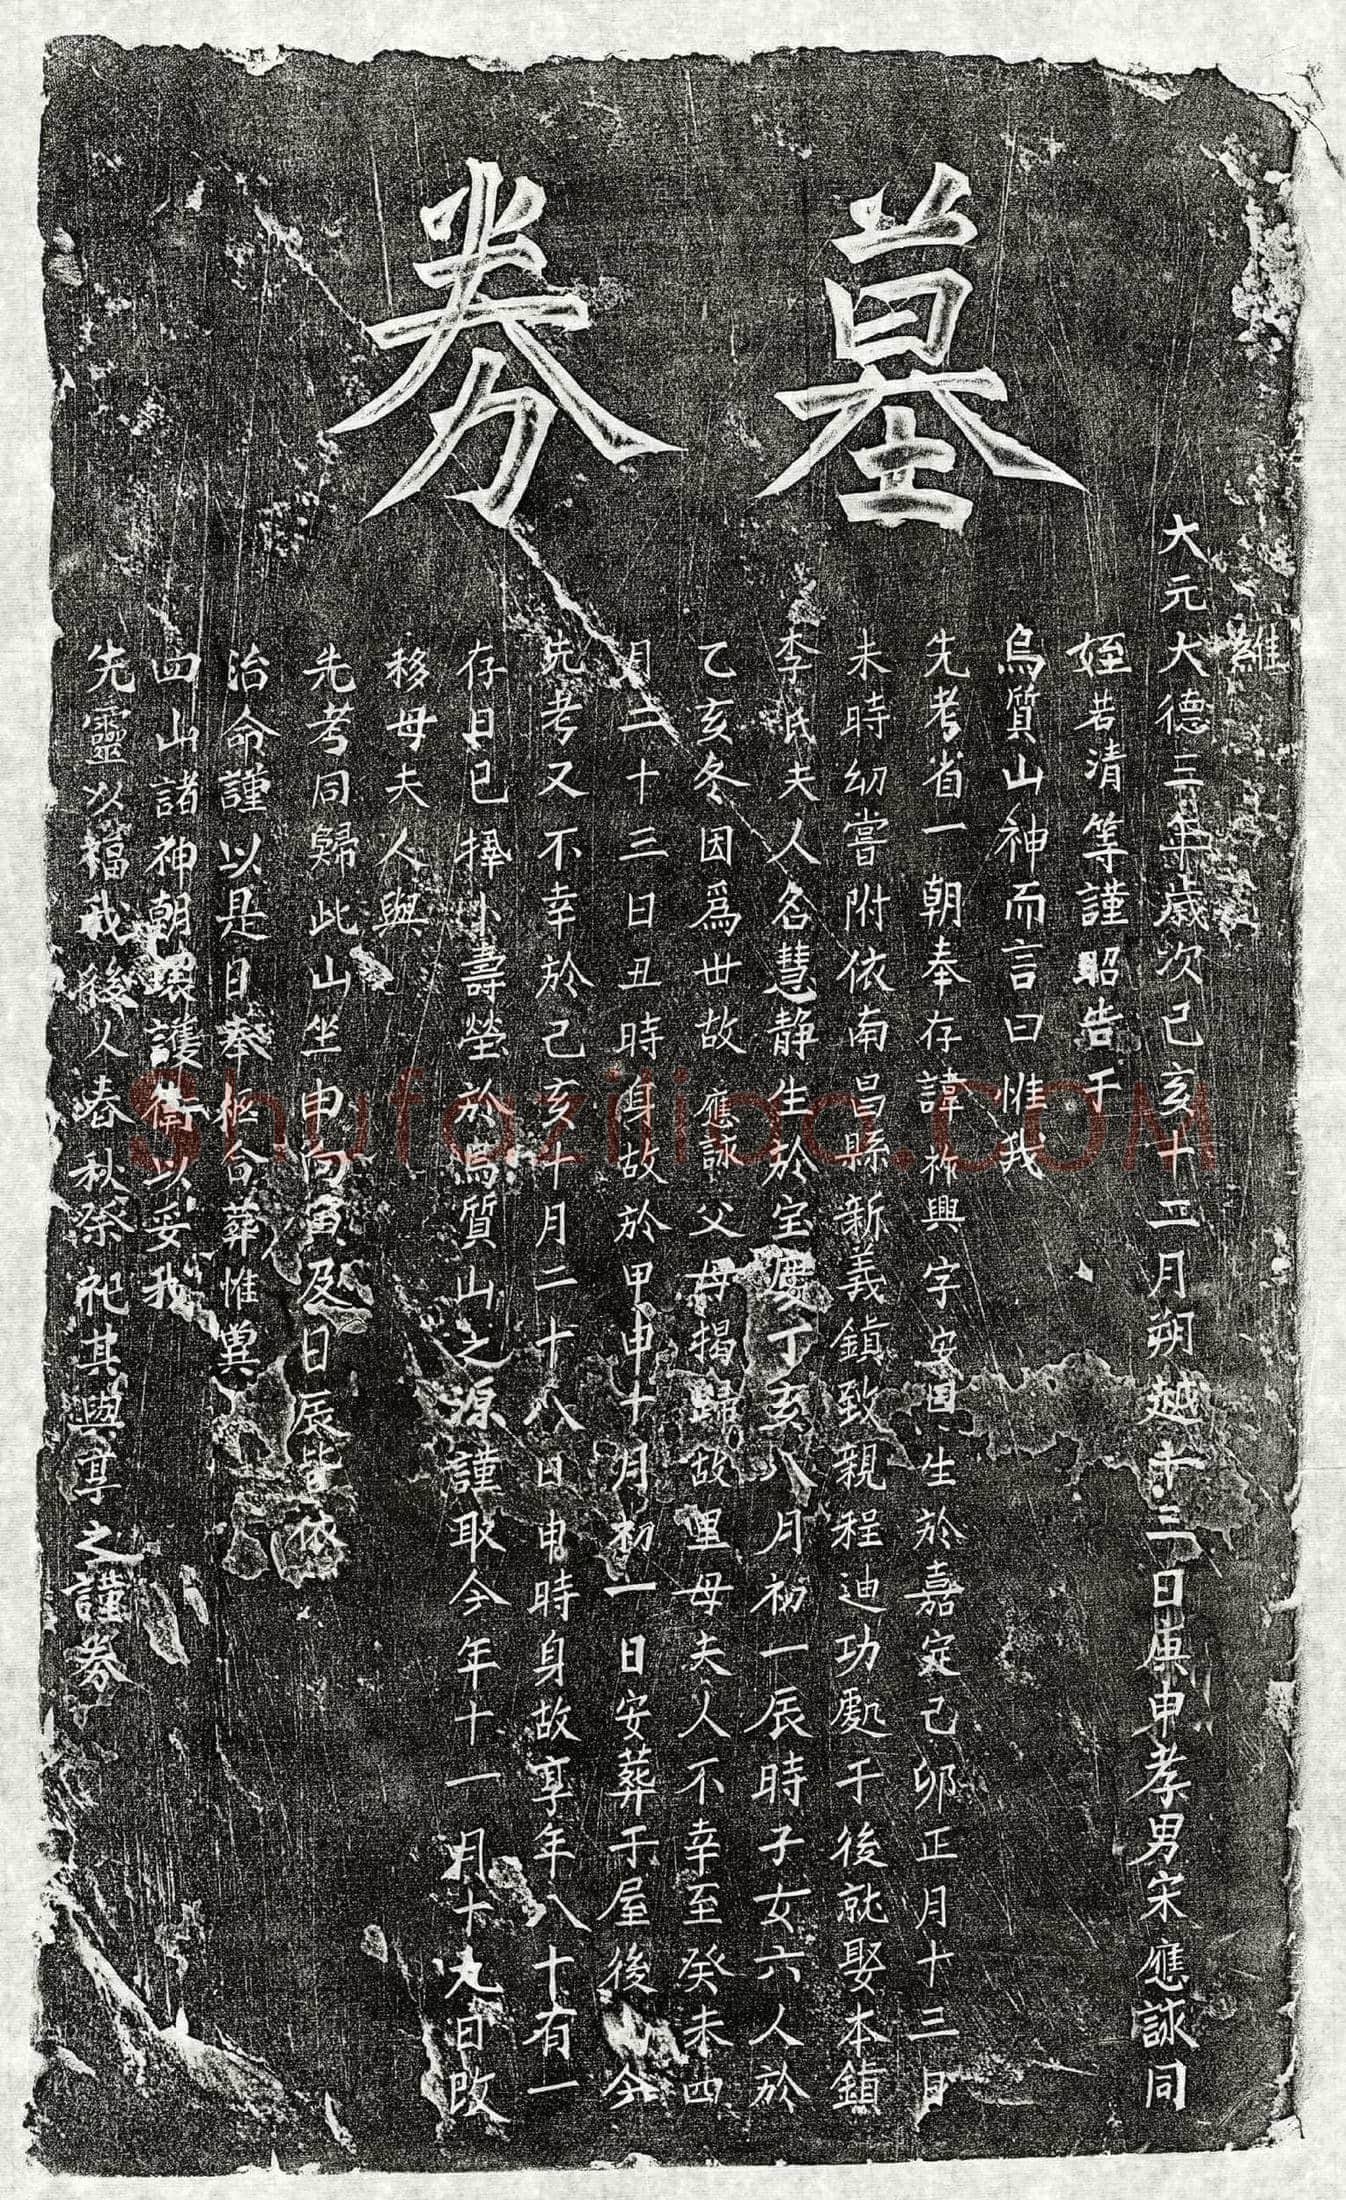 墓券
維
大元大德三年歲次己亥十二月朔越十三日庚申孝男宋應詠同
姪若清等謹昭告于
烏質山神而言曰惟我
先考省一朝奉存諱興字安国生於嘉定己卯正月十三日
未時幼嘗附依南昌縣新義鎮致親程迪功處于後就娶本鎮
李氏夫人名慧静生於宝慶丁亥八月初一辰時子女六人於
乙亥冬因爲世故應詠父母揭歸故里母夫人不幸至癸未四
月二十三日丑時身故於甲申十月初一日安葬于屋後山今
先考又不幸於己亥十月二十八日申時身故享年八十有一
存日已擇小壽塋於烏質山之源謹取今年十一月十九日改
移母夫人與
先考同歸此山坐申向寅及日辰皆依
治命謹以是日奉柩合葬惟冀
四山諸神朝環護衛以妥我
先靈以福我後人春秋祭祀其與享之謹券
Shufaziliao.COM